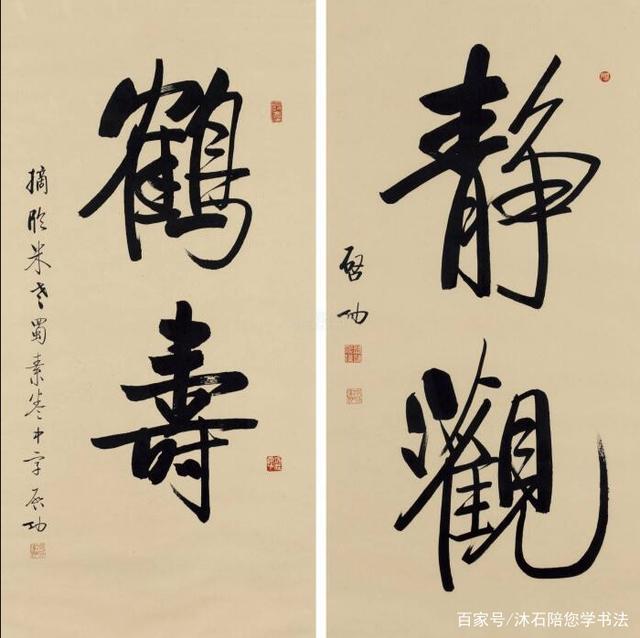 静觀
啓功
鶴壽
摘臨米老蜀素卷中字 启功
百家号/沐石陪您学书法